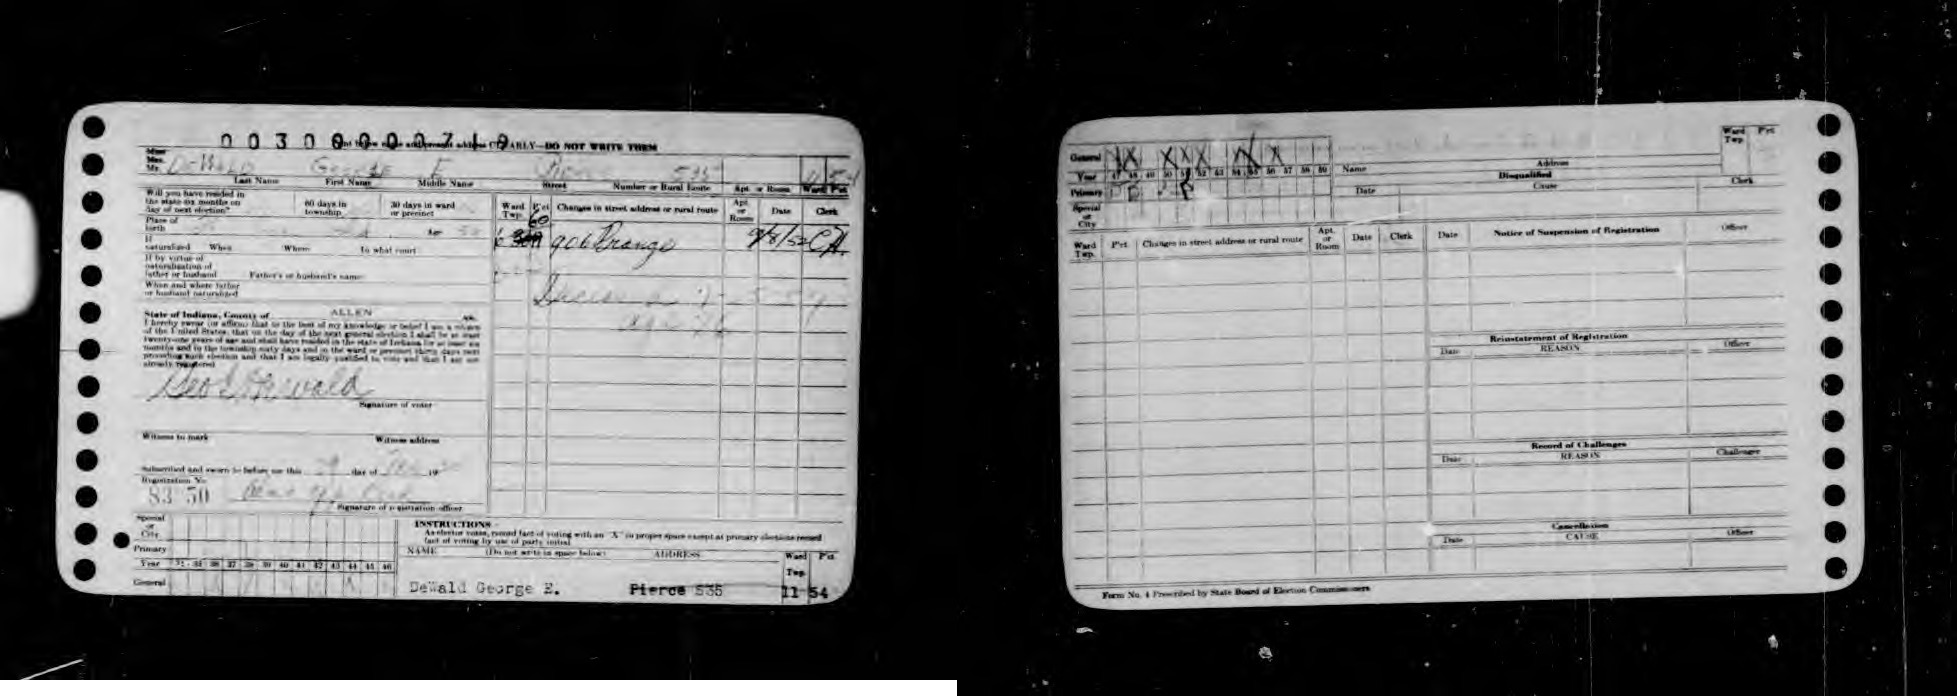 003000000719
Print below name and present address CLEARLY—DO NOT WRITE THEM
Miss
Mrs.
Mr. DeWald George E Pierce 535 11 54
Last Name First Name Middle Name Street Number or Rural Route Apt. or Room Ward Pct
Will you have resided in
the state six months on
day of next election?
60 days in
township
30 days in ward
or precinct
Place of
birth
If
naturalized When Where In what court
If by virtue of
naturalization of
father or husband Father's or husband's name
When and where father
or husband naturalized
State of Indiana, County of ALLEN ss.
I hereby swear (or affirm) that to the best of my knowledge or belief I am a citizen
of the United States, that on the day of the next general election I shall be at least
twenty-one years of age and shall have resided in the state of Indiana for at least six
months and in the township sixty days and in the ward or precinct thirty days next
preceding such election and that I am legally qualified to vote and that I am not
already registered
Geo E DeWald
Signature of voter
Witness to mark Witness address
Subscribed and sworn to before me this 29 day of 19
Registration No
83 50
Signature of registration officer
Ward
Twp. Pct Changes in street address or rural route Apt
or
Room Date Clerk
60
6 906 Prange 9/8/52 C.A.
Deceased
Special
or
City
Primary
Year 34 35 36 37 38 39 40 41 42 43 44 45 46
General
INSTRUCTIONS
As elector votes, record fact of voting with an "X" in proper space except at primary elections record
fact of voting by use of party initial
NAME (Do not write in space below) ADDRESS Ward
Twp. Pct
DeWald George E. Pierce 535 11 54
General X X X X X X X X
Year 47 48 49 50 51 52 53 54 55 56 57 58 59
Primary
Special
or
City
Name Address Ward
Twp Pct
Disqualified
Date Cause Clerk
Ward
Twp. Pct. Changes in street address or rural route Apt.
or
Room Date Clerk
Date Notice of Suspension of Registration Officer
Reinstatement of Registration
Date REASON Officer
Record of Challenges
Date REASON Challenger
Cancellation
Date CAUSE Officer
Form No. 4 Prescribed by State Board of Election Commissioners